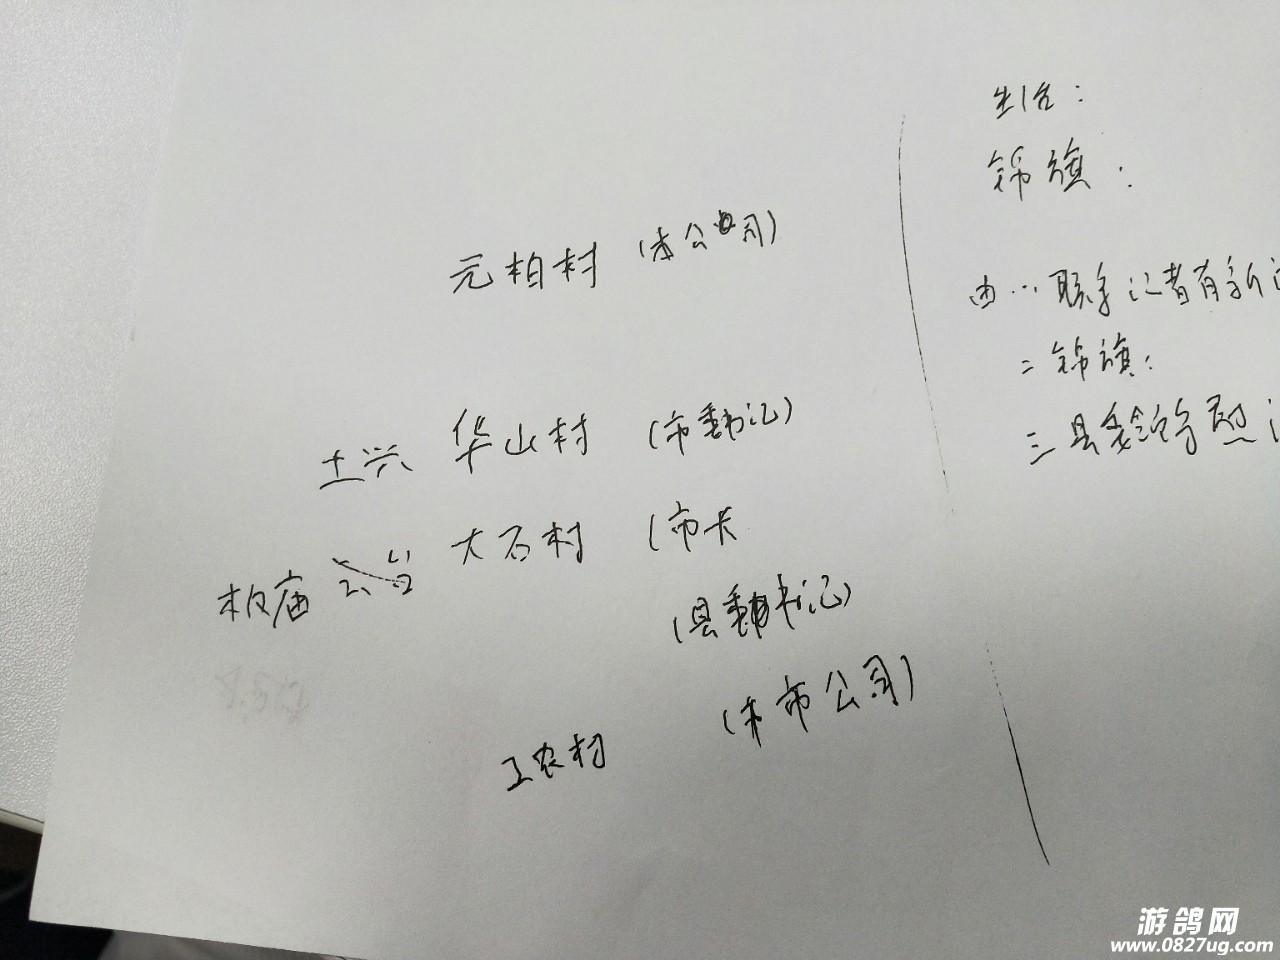 元柏村 (本公司)
土兴 华山村 (市委书记)
板庙 大石村 (市长
(县委书记)
工农村 (本市公司)
锦旗:
由…联系记者有新
二锦旗:
三县委
游鸽网
www.0827ug.com